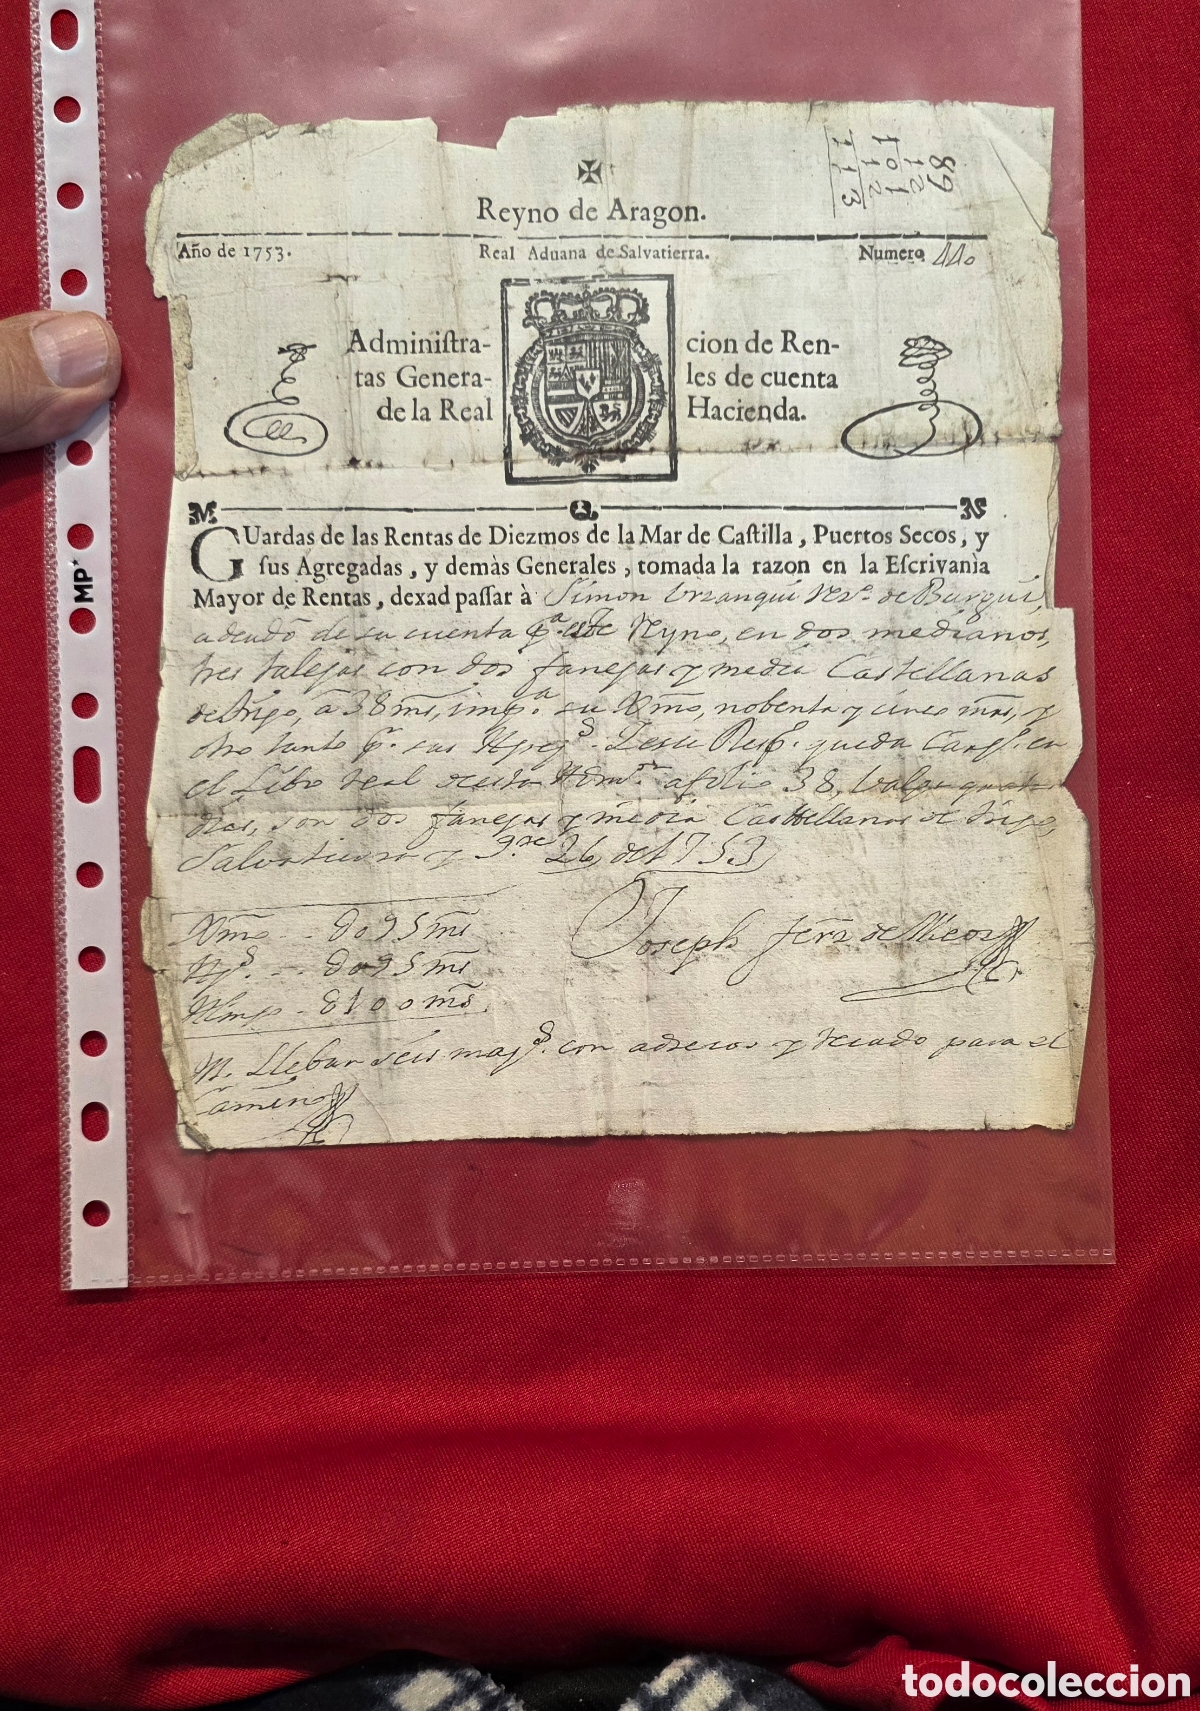 89
121
101
112
113
Reyno de Aragon.
Año de 1753. Real Aduana de Salvatierra. Numero 440
Administra- cion de Ren-
tas Genera- les de cuenta
de la Real Hacienda.
GUardas de las Rentas de Diezmos de la Mar de Castilla, Puertos Secos, y
sus Agregadas, y demàs Generales, tomada la razon en la Escrivanìa
Mayor de Rentas, dexad passar à Simon Urzanqui Vezº. de Burgui,
adeudó de su cuenta pª. este Reyno, en dos medianos,
tres talegas con dos fanegas y media Castellanas
de trigo, à 38 ms, impª su Xmo, nobenta y cinco mrs, y
otro tanto pr. sus queda Cargo. en
el Libro real de esta Admon. a folio 38, Valga quatro
dias, son dos fanegas y media Castellanas de trigo,
Salvatierra y 26 de 1753
Xmo -- 8095 ms
8095 ms
8100 ms
Joseph Ferz de
Llebar seis con aderezos y recado para el
Camino
MP
todocoleccion